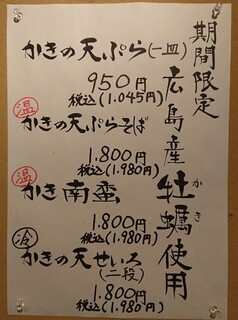 期間限定
広島産牡蠣使用
かき
かきの天ぷら(一皿)
950円
税込(1.045円)
温
かきの天ぷらそば
1.800円
税込(1.980円)
温
かき南蛮
1.800円
税込(1.980円)
冷
かきの天せいろ
(二段)
1.800円
税込(1.980円)